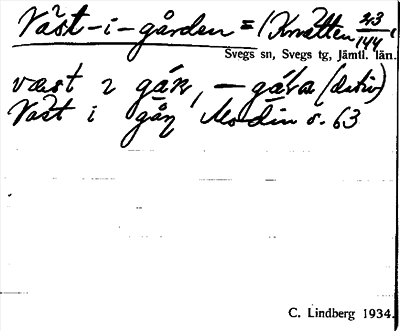 Väst-i-gården = (Knätten 2/3/144)
Svegs sn, Svegs tg, Jämtl. län.
väst i gáṛ, – gáṛa (dativ)
Väst i gåṇ Modin s. 63
C. Lindberg 1934.